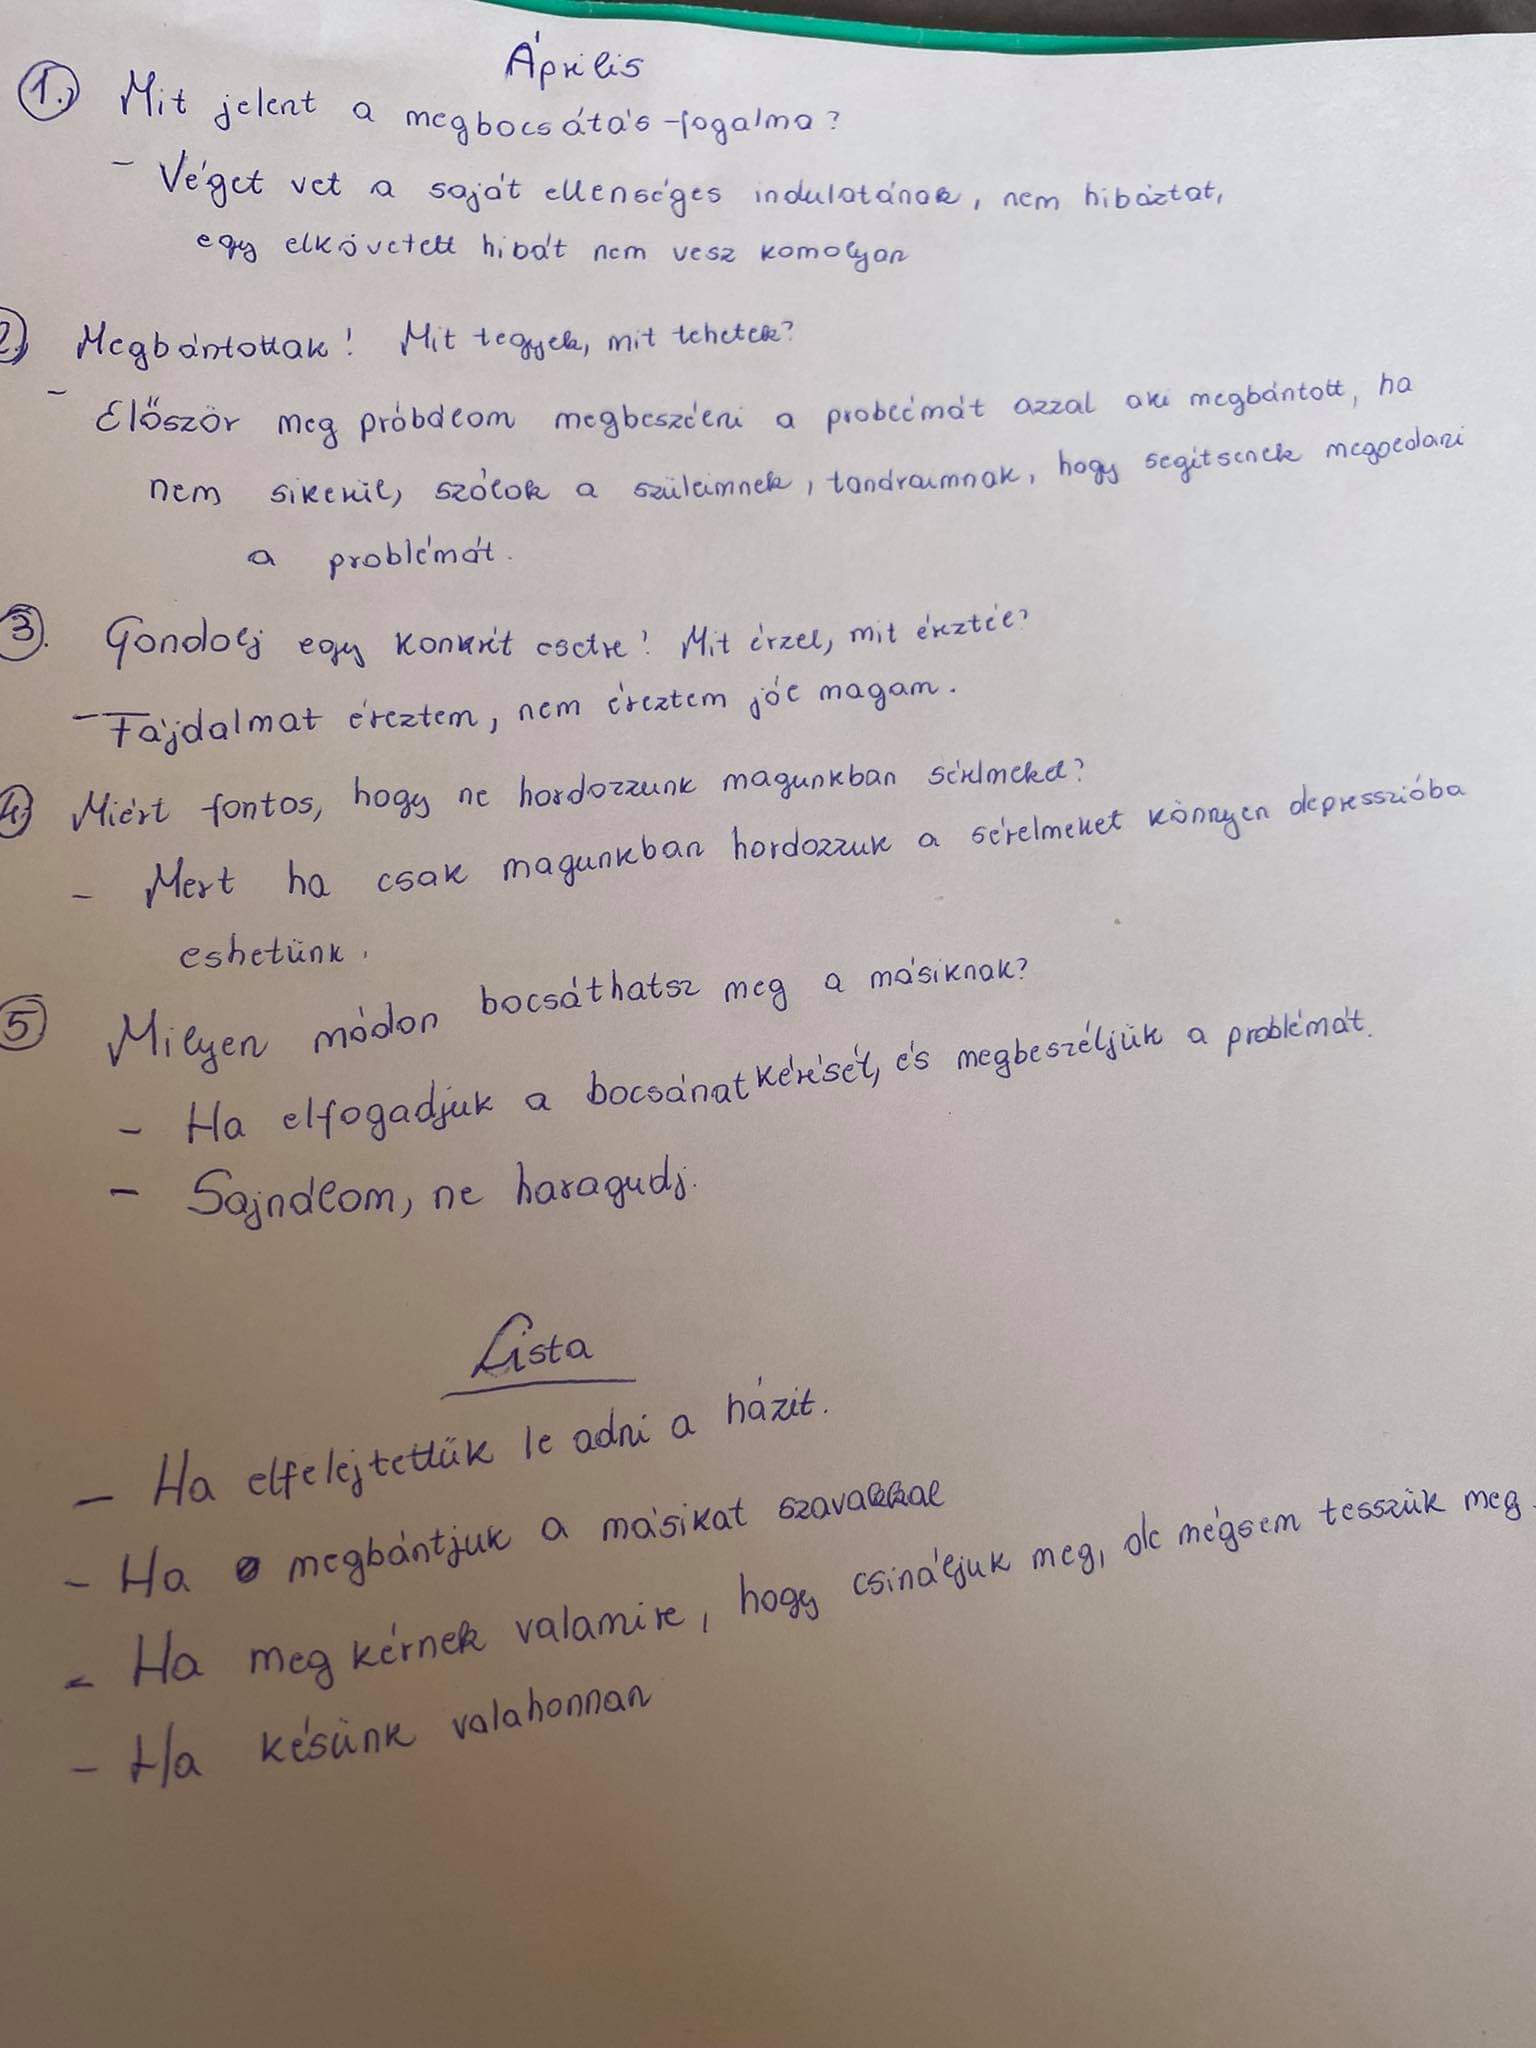 Április
1. Mit jelent a megbocsátás-fogalma?
- Véget vet a saját ellenséges indulatának, nem hibáztat,
egy elkövetett hibát nem vesz komolyan
2. Megbántottak! Mit tegyek, mit tehetek?
- Először meg próbálom megbeszélni a problémát azzal aki megbántott, ha
nem sikerül, szólok a szüleimnek, tanáraimnak, hogy segítsenek megoldani
a problémát.
3. Gondolj egy konkrét esetre! Mit érzel, mit éreztél?
- Fájdalmat éreztem, nem éreztem jól magam.
4. Miért fontos, hogy ne hordozzunk magunkban sérelmeket?
- Mert ha csak magunkban hordozzuk a sérelmeket könnyen depresszióba
eshetünk.
5. Milyen módon bocsáthatsz meg a másiknak?
- Ha elfogadjuk a bocsánatkérését, és megbeszéljük a problémát.
- Sajnálom, ne haragudj.
Lista
- Ha elfelejtettük le adni a házit.
- Ha megbántjuk a másikat szavakkal
- Ha meg kérnek valamire, hogy csináljuk meg, de mégsem tesszük meg.
- Ha késünk valahonnan